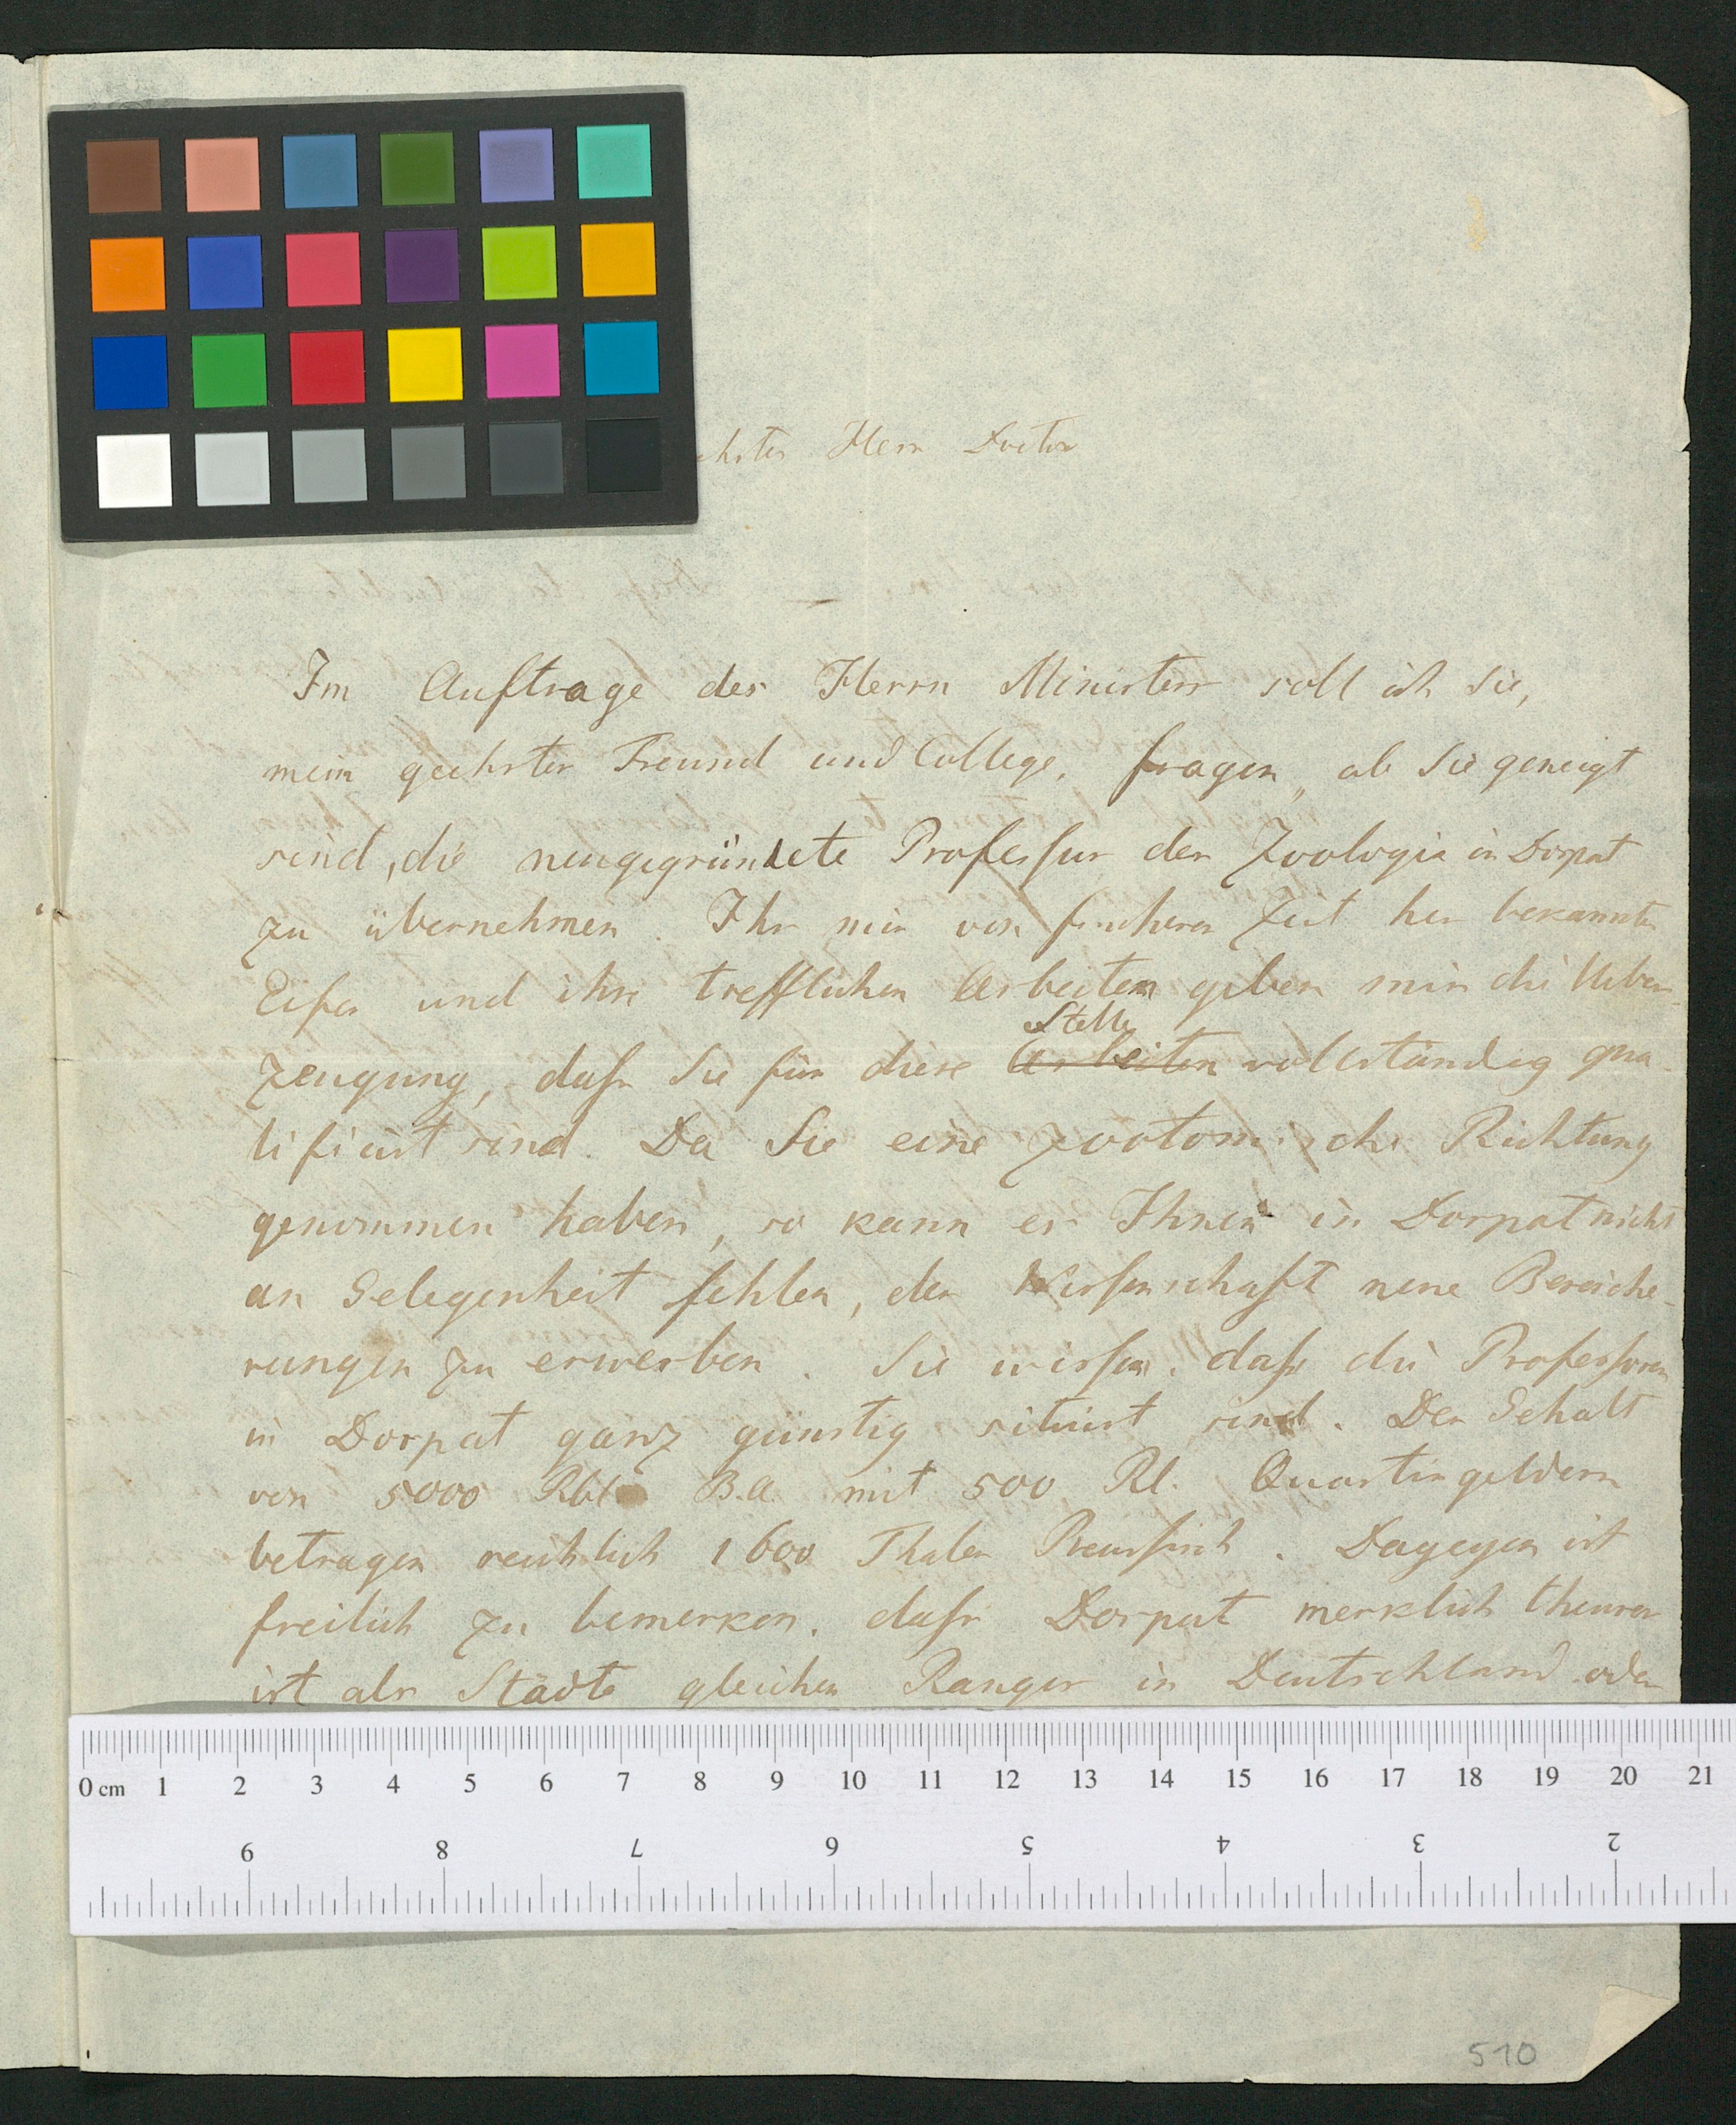 Herr Doctor
Im Auftrage des Herrn Ministers soll ich Sie,
mein geehrter Freund und College, fragen, ob Sie geneigt
sind, die neugegründete Professur der Zoologie in Dorpat
zu übernehmen. Ihr mir von früherer Zeit her bekannter
Eifer und ihre trefflichen Arbeiten geben mir die Ueber-
Stelle
zeugung, dass Sie für diese Arbeiten vollständig qua-
lificirt sind. Da Sie eine zootomische Richtung
genommen haben, so kann es Ihnen in Dorpat nicht
an Gelegenheit fehlen, der Wissenschaft neue Bereiche-
rungen zu erwerben. Sie wissen, dass die Professoren
in Dorpat ganz günstig situirt sind. Der Gehalt
von 5000 Rbl B.A. mit 500 Rl. Quartirgeldern
betragen reichlich 1600 Thaler Preussisch. Dagegen ist
freilich zu bemerken, dass Dorpat merklich theurer
ist als Städte gleichen Ranges in Deutschland oder
0 cm 1 2 3 4 5 6 7 8 9 10 11 12 13 14 15 16 17 18 19 20 21
9 8 7 6 5 4 3 2
510